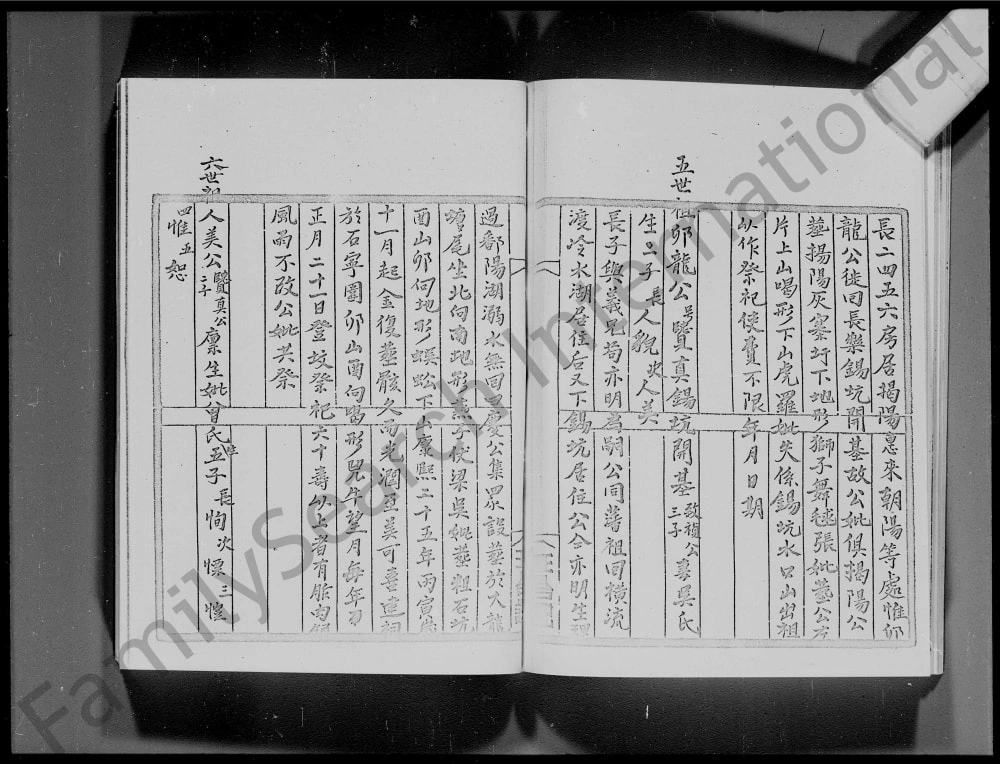 長二四五六房居揭陽惠來朝陽等處惟卯
龍公徙回長樂錫坑開基故公妣俱揭陽公
葬揭陽灰寨圩下地形獅子舞毬張妣葬公左
片上山喝形下山虎羅妣失係錫坑水口山出租
以作祭祀使費不限年月日期
五世祖卯龍公号覽真錫坑開基啟禎公三子妻吳氏
生二子長人貌次人美
長子與義兄苟亦明為嗣公同蕚祖回橫流
渡冷水湖居住后又下錫坑居住公合亦明生理
過鄱陽湖溺水無回眾慶公集眾設葬於大龍
塘尾坐北向南地形 吳妣葬粗石坑
酉山卯向地形蜈蚣下 康熙二十五年丙寅歲
十一月起金復葬骸久而光潤至美可喜
於石寧園卯山酉向喝形兕牛望月每年
正月二十一日登坟祭祀六十壽以上者有胙肉
風雨不改公妣共祭
六世祖人美公覽真公二子廪生妣曾氏生五子長恂次懷三惺
四惟五恕
FamilySearch International